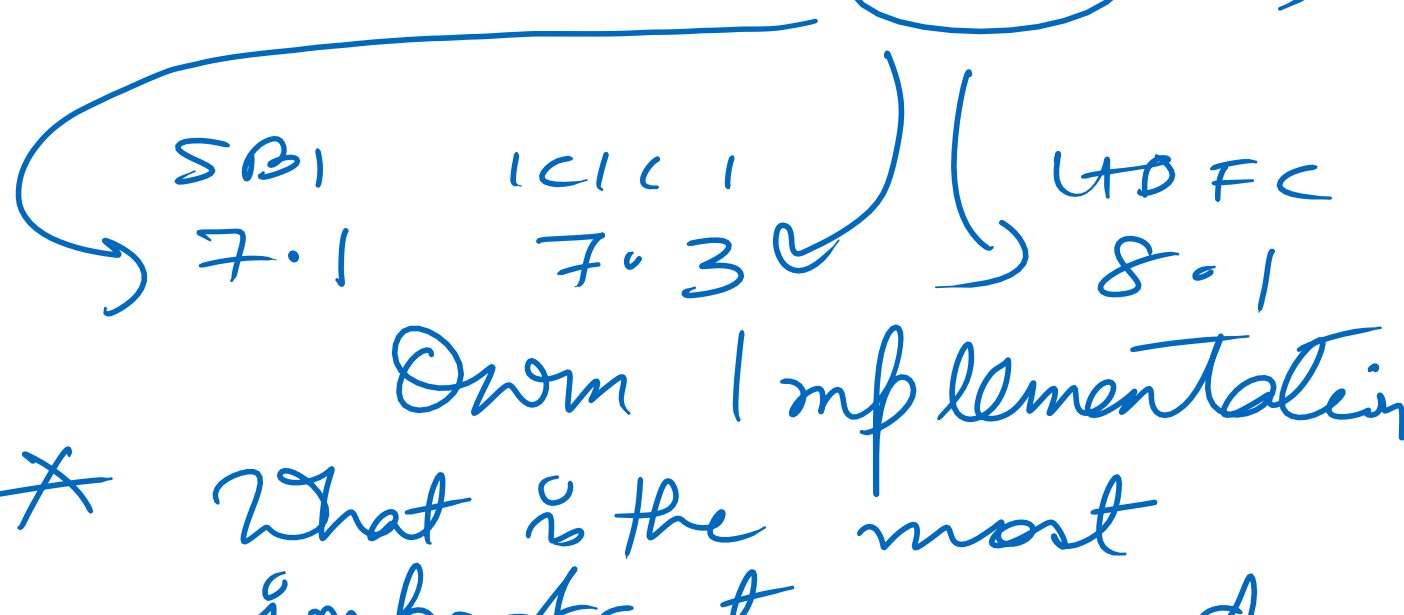 SBI ICICI HDFC
7.1 7.3 8.1
Own Implementation
* What is the most